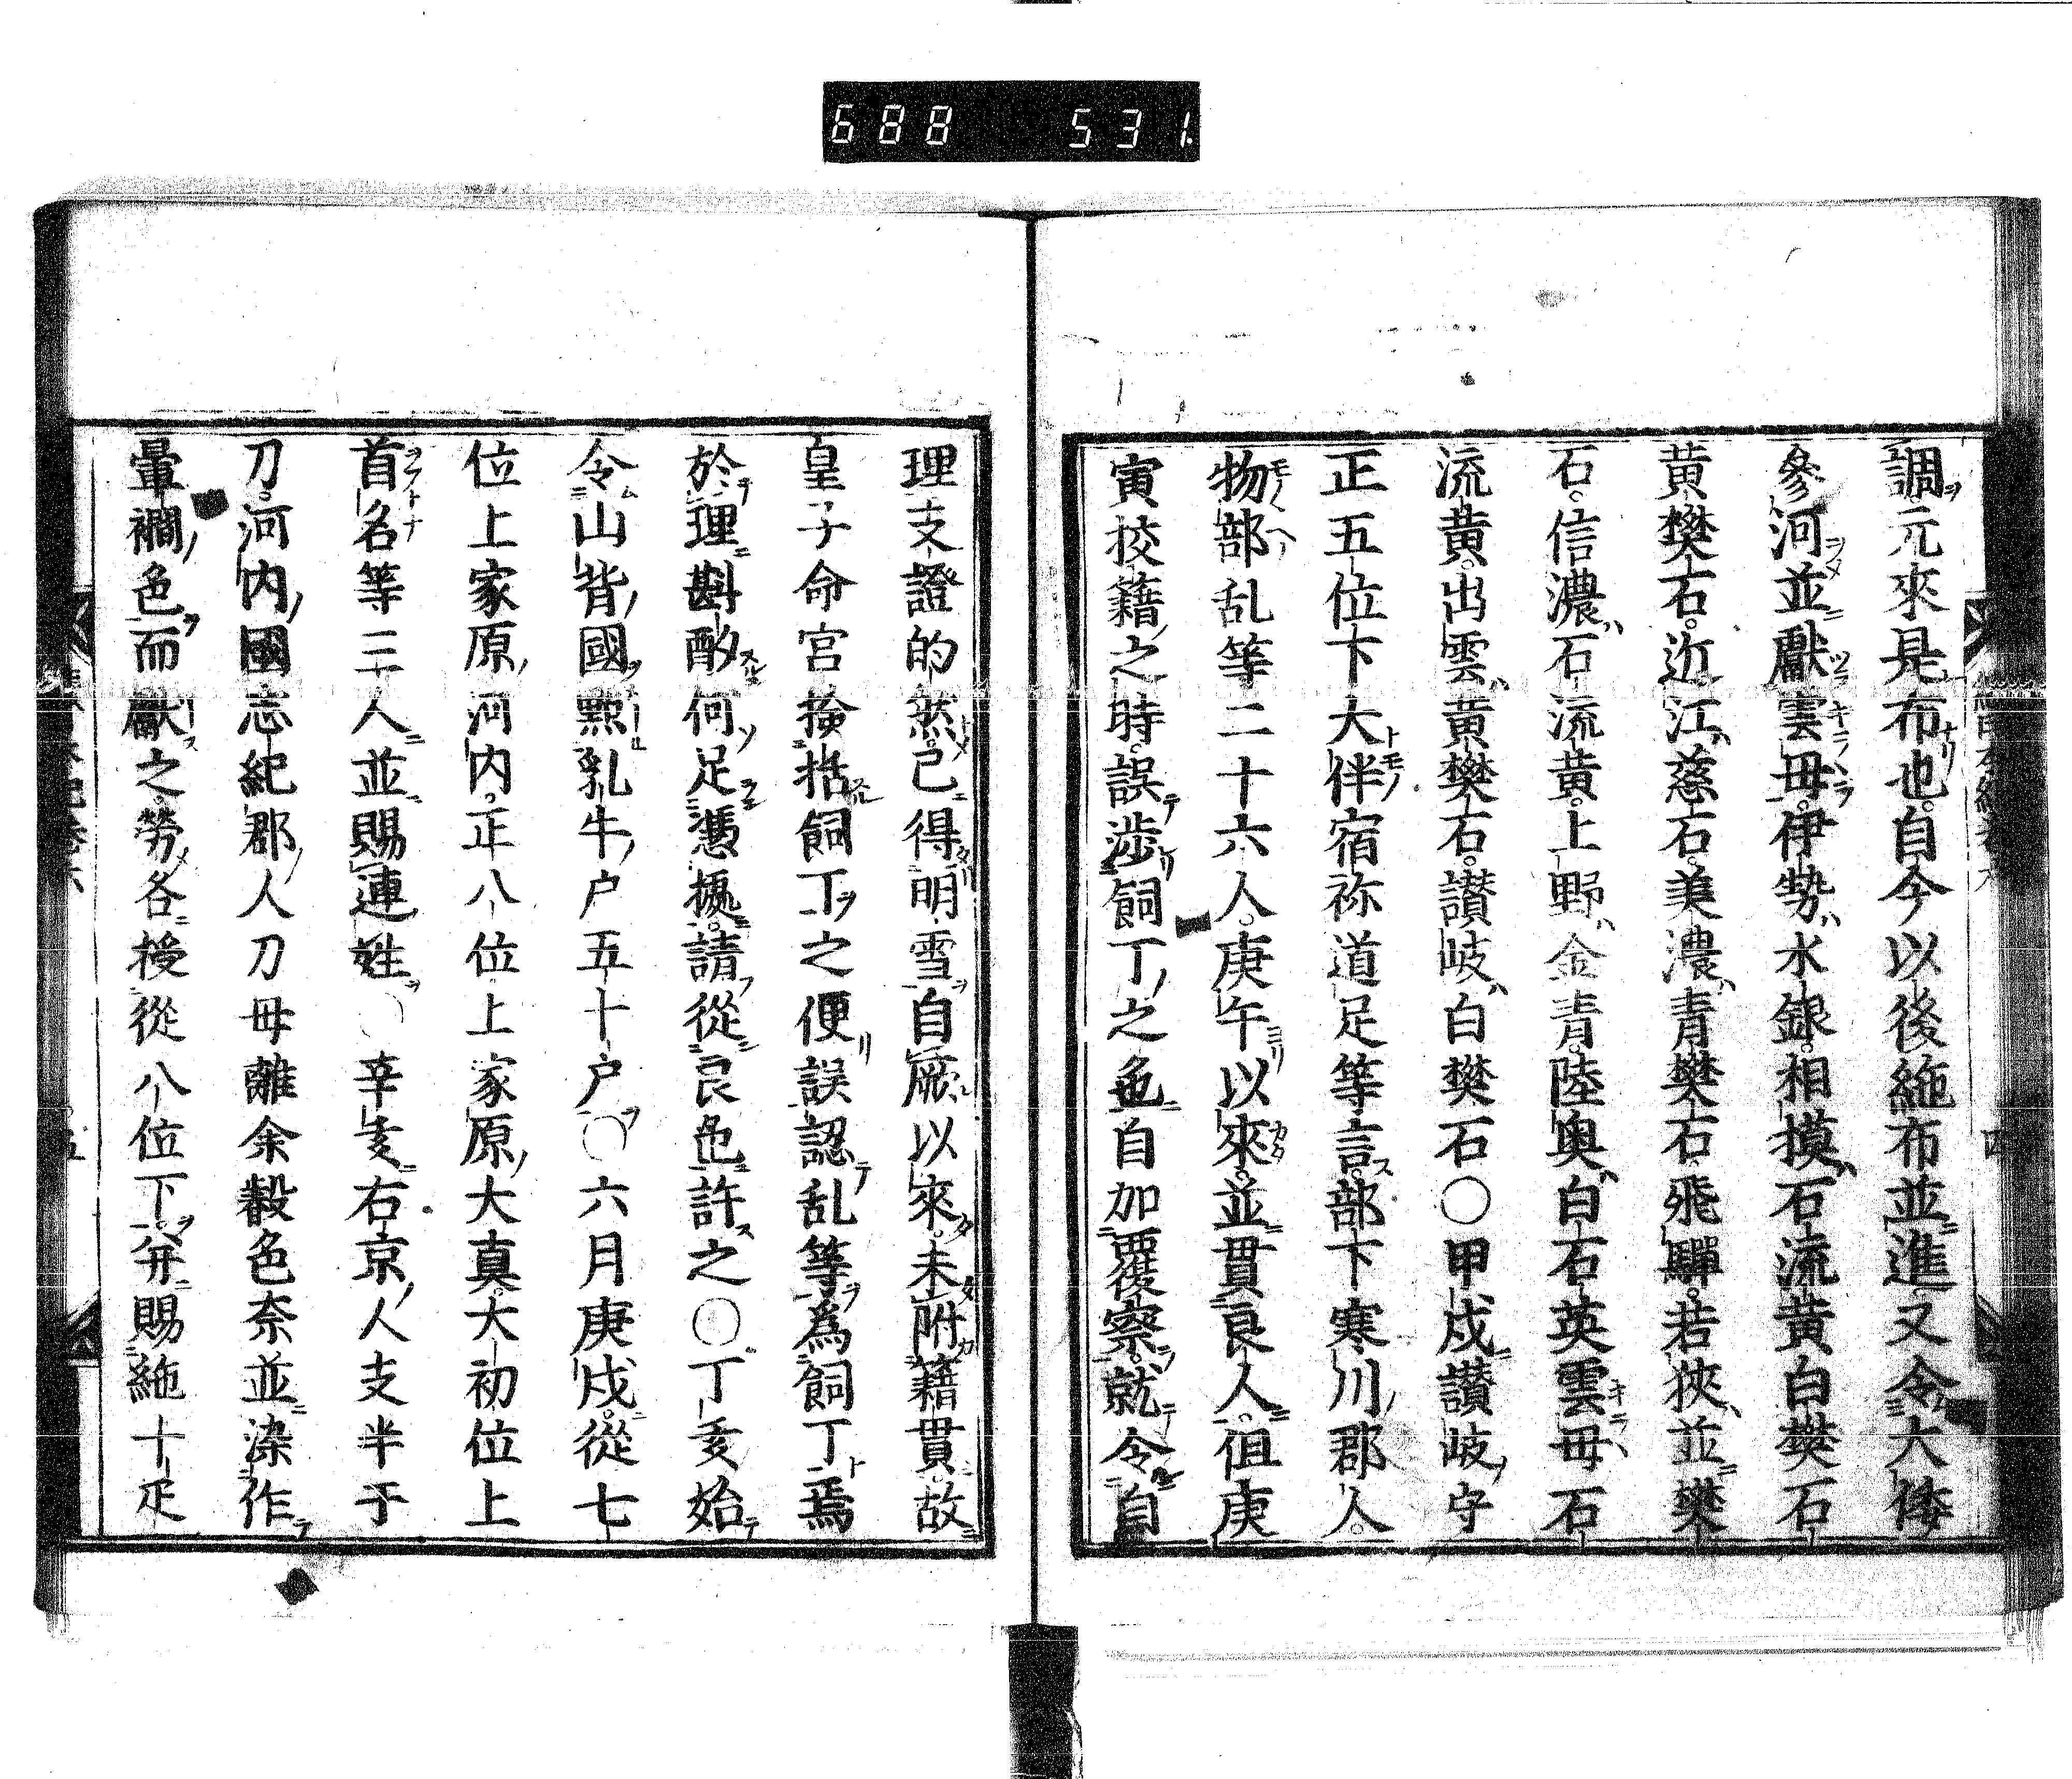 688 531
調元來是布也自今以後絁布並進又令大倭
參河並獻雲母伊勢水銀相摸石流黃白樊石
黃樊石近江慈石美濃青樊石飛驒若狹並樊
石信濃石流黃上野金青陸奥白石英雲母石
流黃出雲黃樊石讃岐白樊石〇甲戌讃岐守
正五位下大伴宿祢道足等言部下寒川郡人
物部乱等二十六人庚午以來並貫良人但庚
寅挍籍之時誤渉飼丁之色自加覆察就令自
理支證的然已得明雪自厥以來未附籍貫故
皇子命宮撿括飼丁之便誤認乱等爲飼丁焉
於理斟酌何足憑據請從良色許之〇丁亥始
令山背國點乳牛戸五十戸〇六月庚戌從七
位上家原河内正八位上家原大真大初位上
首名等三人並賜連姓〇辛亥右京人支半于
刀河内國志紀郡人刀母離余叡色奈並染作
暈襉色而獻之勞各授從八位下并賜絁十疋